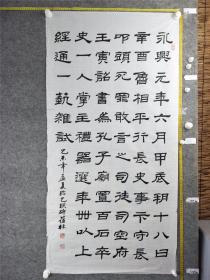 永興元年六月甲辰朔十八日
辛酉魯相平行長史事卞守長
叩頭死罪敢言之司徒司空府
壬寅詔書為孔子廟置百石卒
史一人掌主禮器選年卌以上
經通一藝雜試
乙未年孟夏乙瑛碑林